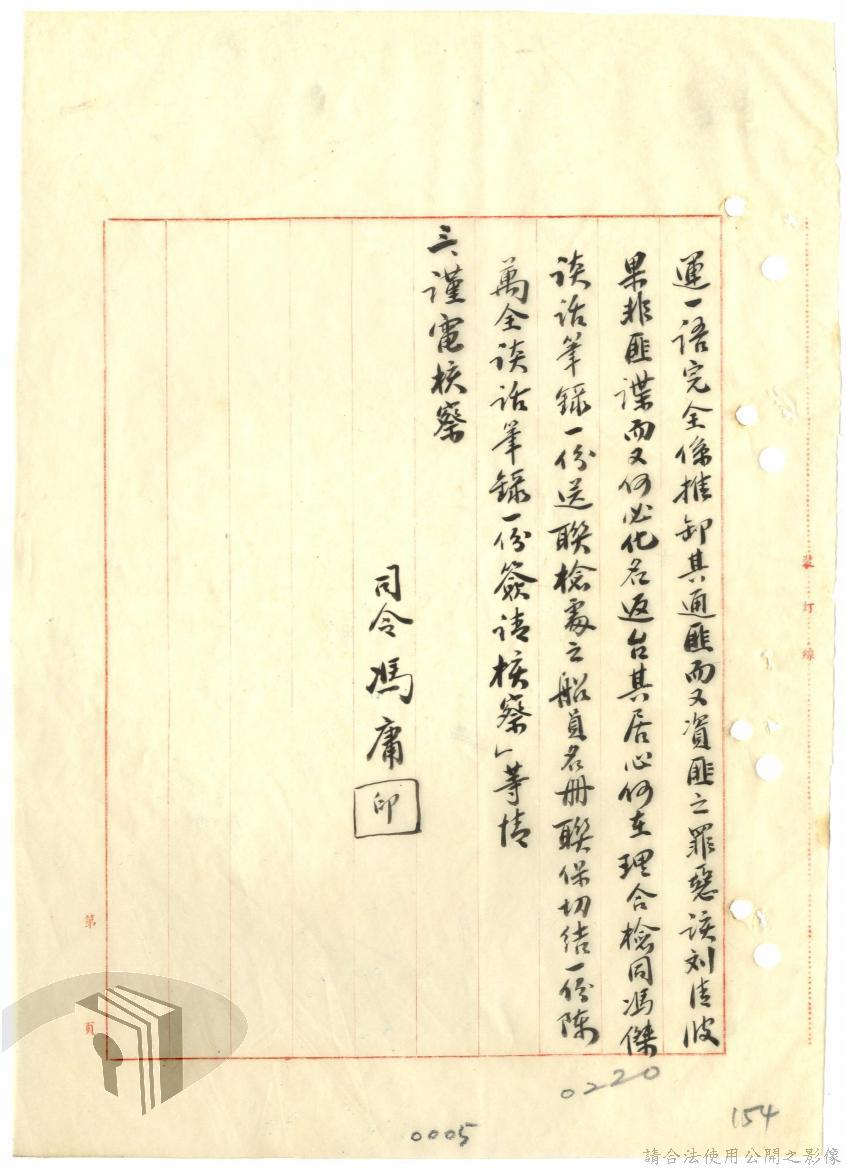 運一語完全係推卸其通匪而又資匪之罪惡該刘清波
果非匪諜而又何必化名返台其居心何在理合檢同馮傑
談話筆錄一份送聯檢處之船員名冊聯保切結一份陳
萬全談話筆錄一份簽請核察」等情
三、謹電核察
司令馮庸
印
裝訂線
第 頁
0220
154
0005
請合法使用公開之影像